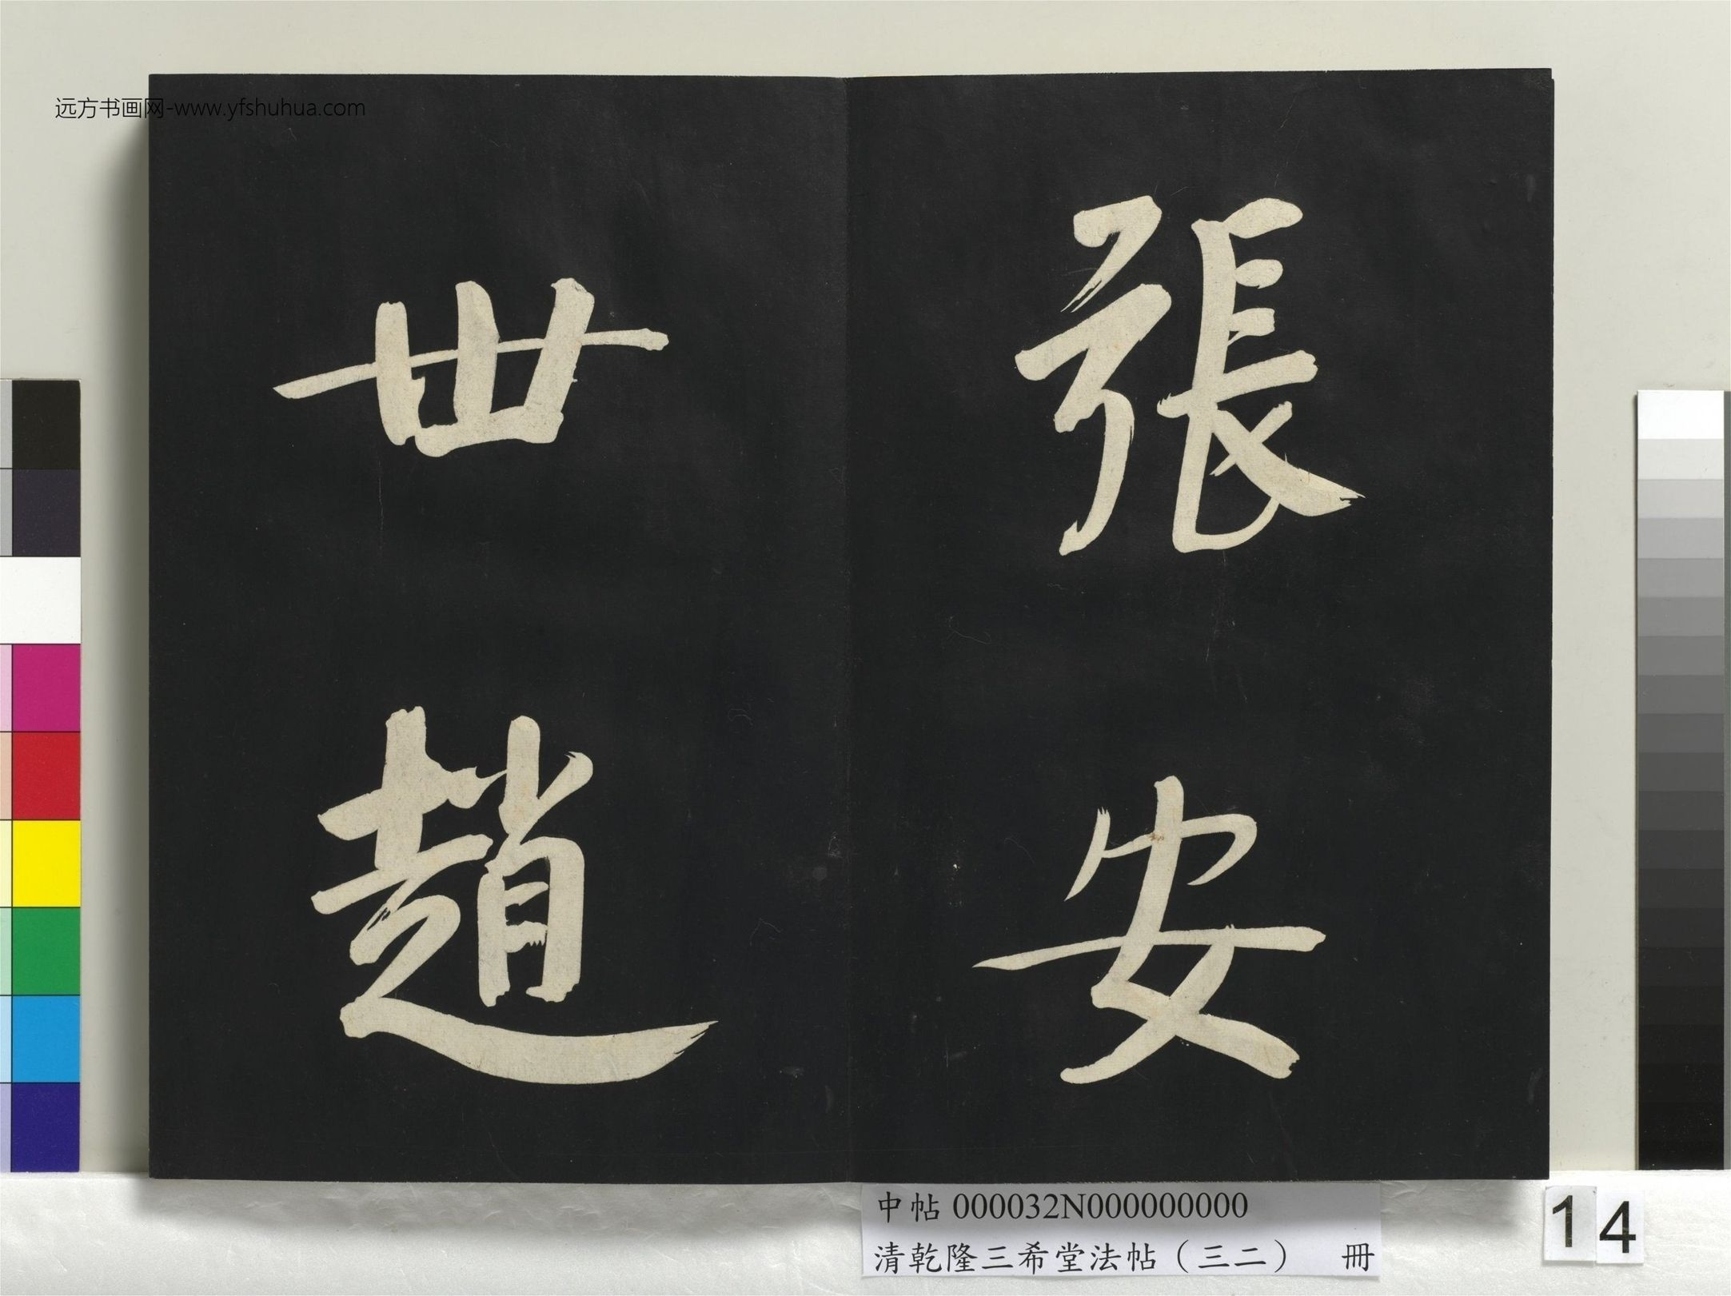 远方书画网-www.yfshuhua.com
張安
世趙
中帖 000032N000000000
清乾隆三希堂法帖（三二） 冊
14